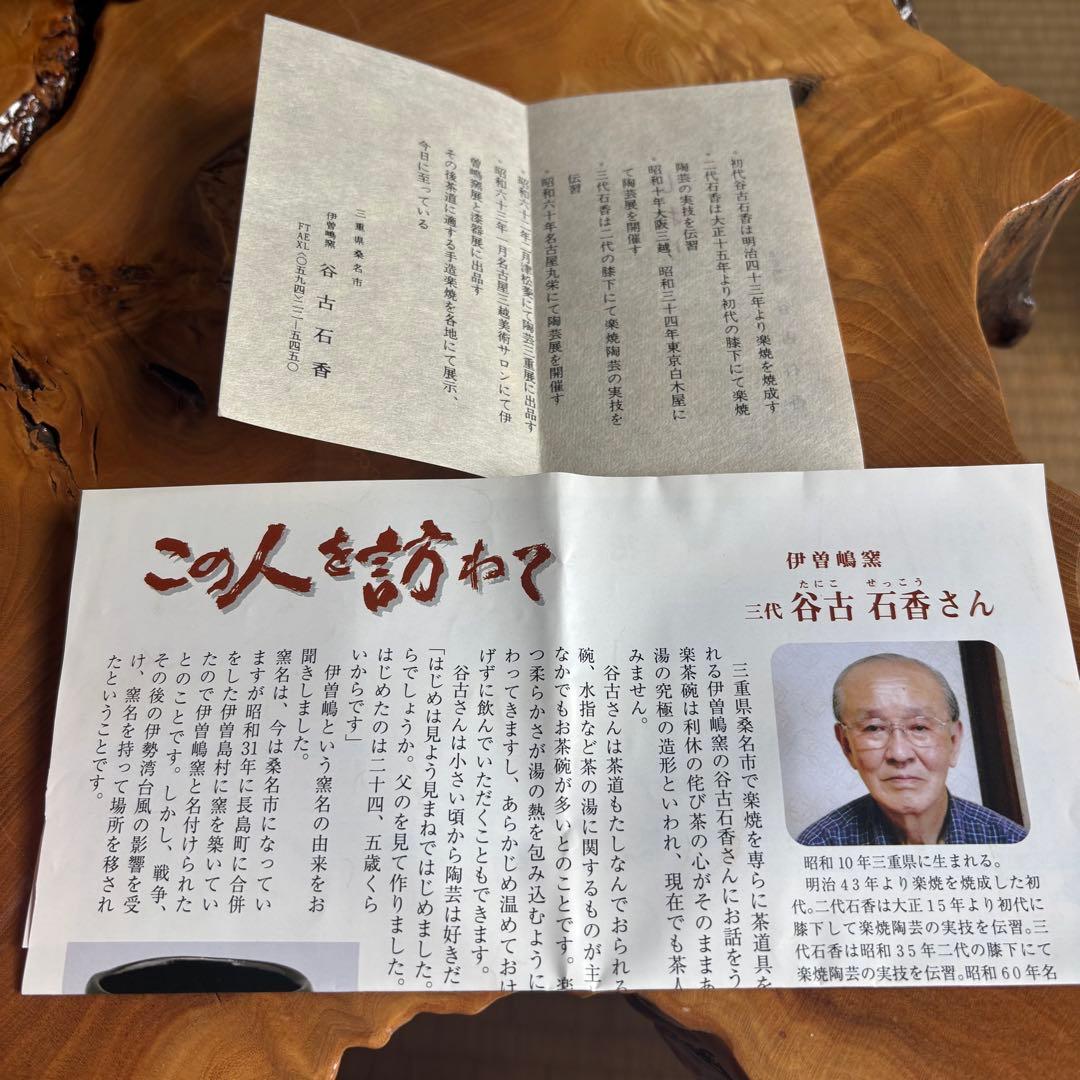 ・初代谷古石香は明治四十三年より楽焼を焼成す
・二代石香は大正十五年より初代の膝下にて楽焼
陶芸の実技を伝習
・昭和十年大阪三越、昭和三十四年東京白木屋に
て陶芸展を開催す
・三代石香は二代の膝下にて楽焼陶芸の実技を
伝習
・昭和六十年名古屋丸栄にて陶芸展を開催す
・昭和六十二年二月津松菱にて陶芸三重展に出品す
・昭和六十三年一月名古屋三越美術サロンにて伊
曽嶋窯展と漆器展に出品す
その後茶道に適する手造楽焼を各地にて展示、
今日に至っている
三重県桑名市
伊曽嶋窯 谷古石香
TEL
FAX(〇五九四)二二―五四五〇
この人を訪わて
伊曽嶋窯
たにこ せっこう
三代 谷古 石香さん
昭和10年三重県に生まれる。
明治43年より楽焼を焼成した初
代。二代石香は大正15年より初代に
膝下して楽焼陶芸の実技を伝習。三
代石香は昭和35年二代の膝下にて
楽焼陶芸の実技を伝習。昭和60年名
三重県桑名市で楽焼を専らに茶道具を
れる伊曽嶋窯の谷古石香さんにお話をう
楽茶碗は利休の侘び茶の心がそのままあ
湯の究極の造形といわれ、現在でも茶人
みません。
谷古さんは茶道もたしなんでおられる
碗、水指など茶の湯に関するものが主
なかでもお茶碗が多いとのことです。楽
つ柔らかさが湯の熱を包み込むように
わってきますし、あらかじめ温めておけ
げずに飲んでいただくこともできます。
谷古さんは小さい頃から陶芸は好きだ
「はじめは見よう見まねではじめました。
らでしょうか。父のを見て作りました。
はじめたのは二十四、五歳くら
いからです」
伊曽嶋という窯名の由来をお
聞きしました。
窯名は、今は桑名市になってい
ますが昭和31年に長島町に合併
をした伊曽島村に窯を築いてい
たので伊曽嶋窯と名付けられた
とのことです。しかし、戦争、
その後の伊勢湾台風の影響を受
け、窯名を持って場所を移され
たということです。